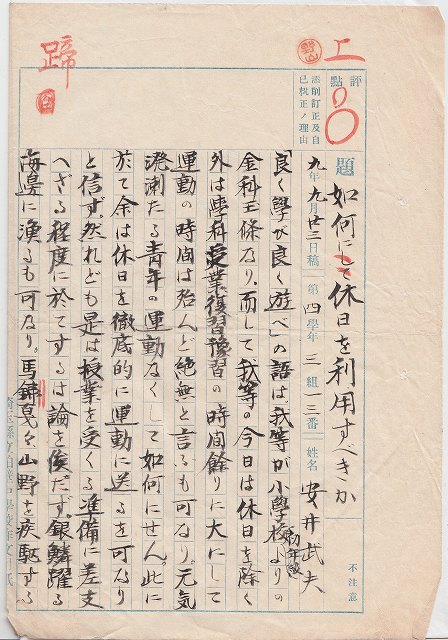 上
評點
90
添削訂正及自己校正ノ理由
題 如何にして休日を利用すべきか
九年九月廿三日稿 第四學年三組一三番 姓名 安井武夫 不注意
「良く學び良く遊べ」の語は、我等が小學校初年級よりの
金科玉條なり、而して我等の今日は休日を除く
外は學科授業復習豫習の時間餘りに大にして
運動の時間は殆んど絶無と言ふも可なり。元気
溌溂たる青年の運動なくして如何にせん。此に
於て余は休日を徹底的に運動に送るを可なり
と信ず、然れども是は授業を受くる準備に差支
へざる程度に於てするは論を俟たず、銀鱗躍る
海邊に漁るも可なり。馬蹄戞々山野を疾駆する
蹄